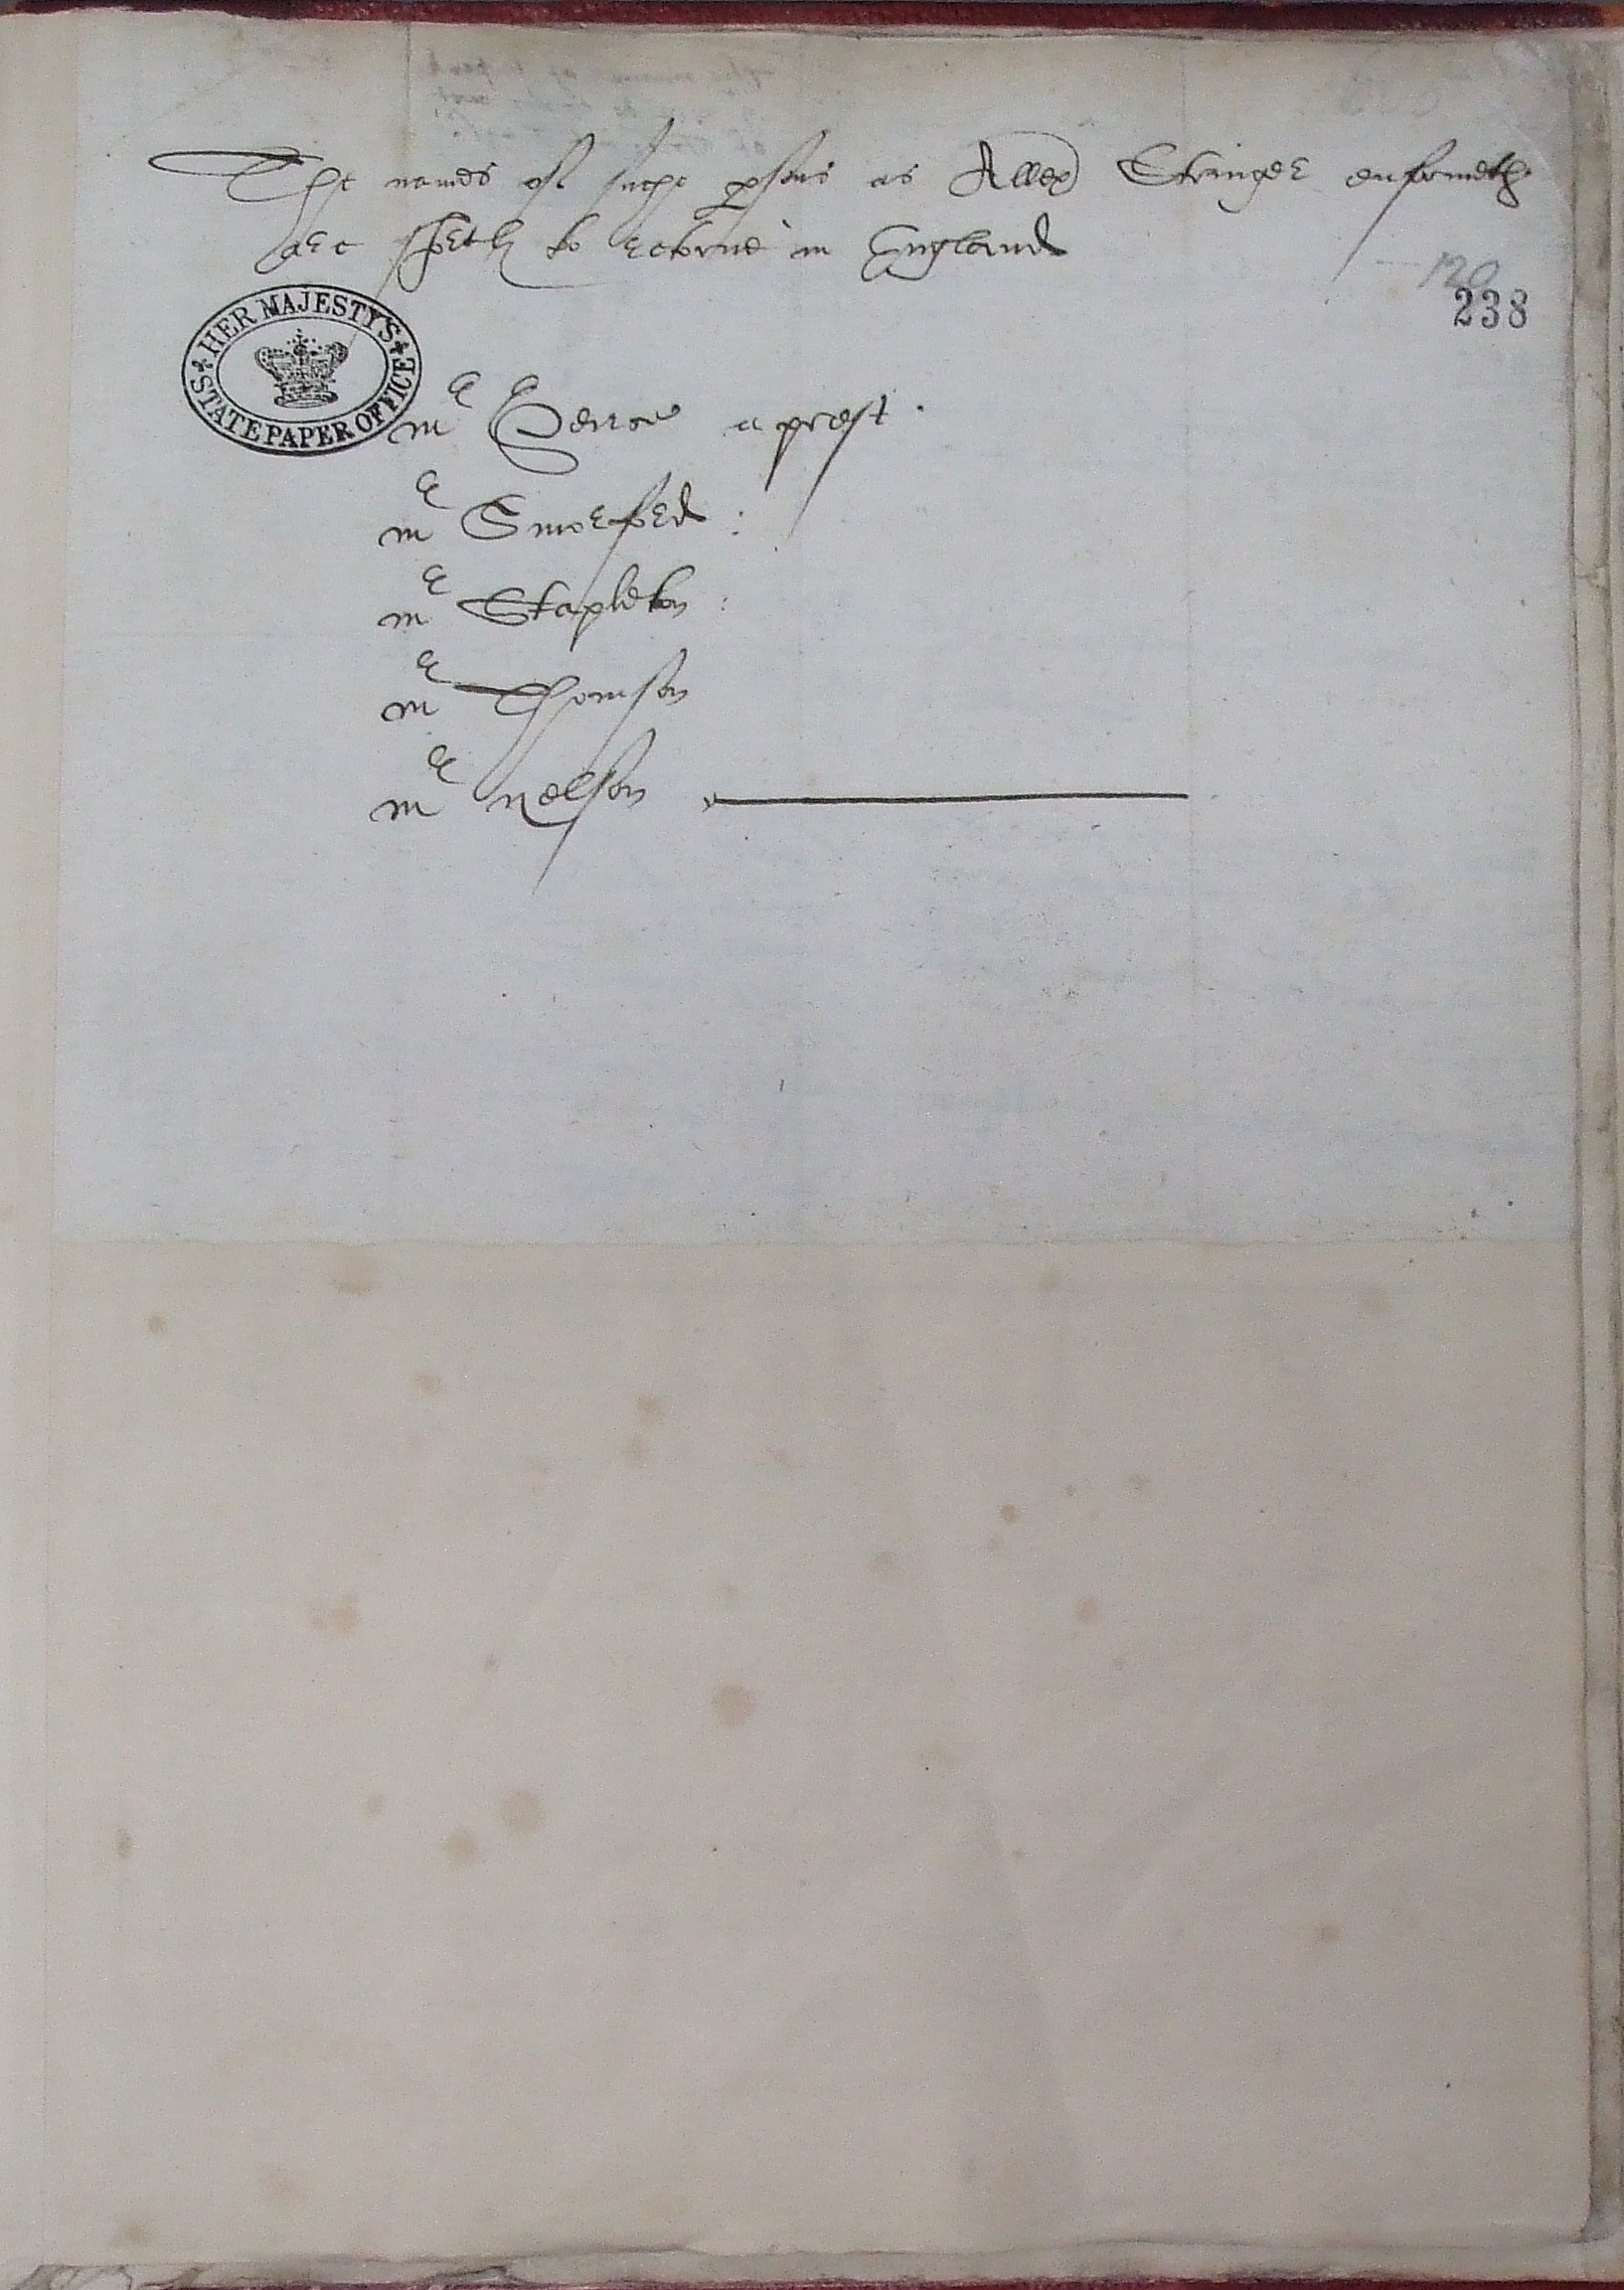 The names of suche psons as Allex Stranger enformeth
are shortly to retorne in England
120
238
HER MAJESTY'S STATE PAPER OFFICE
mr a prest .
mr
mr Stapleton :
mr Thomson
mr nelson